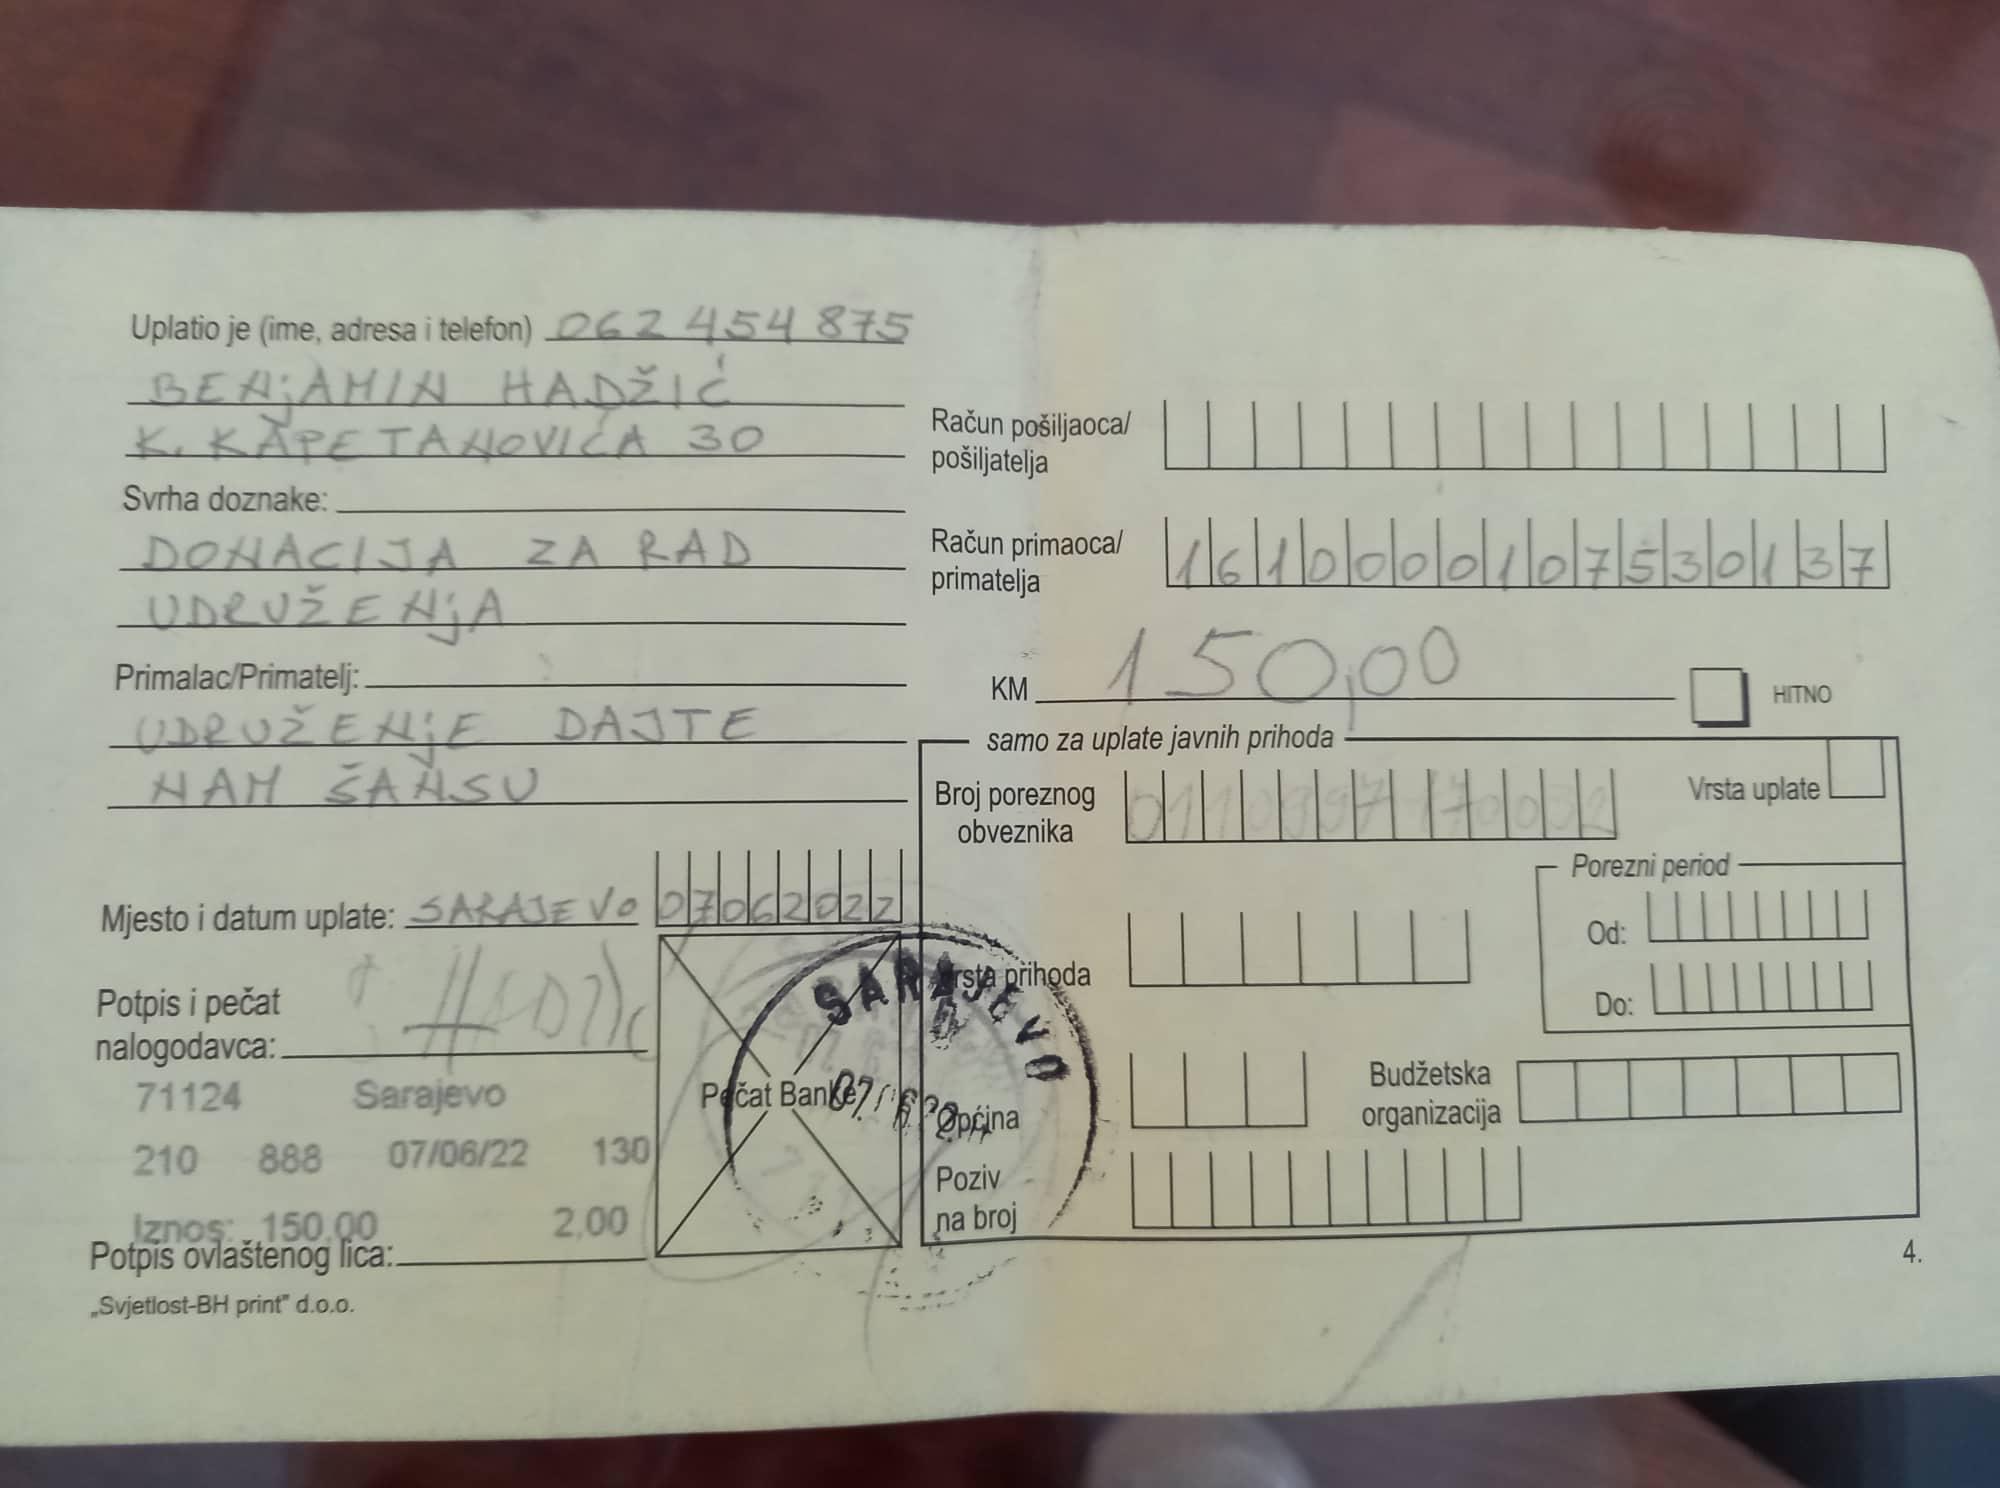 Uplatio je (ime, adresa i telefon) 062 454 875
BENjAMIN HADŽIĆ
K. KAPETANOVIĆA 30
Svrha doznake:
DONACIJA ZA RAD
UDRUŽENjA
Primalac/Primatelj:
UDRUŽENjE DAJTE
NAM ŠANSU
Mjesto i datum uplate: SARAJEVO 07062022
Potpis i pečat
nalogodavca:
71124 Sarajevo
210 888 07/06/22 130
Iznos: 150,00 2,00
Potpis ovlaštenog lica:
„Svjetlost-BH print" d.o.o.
Pečat Banke
SARAJEVO
Račun pošiljaoca/
pošiljatelja
Račun primaoca/
primatelja
1610000107530137
KM 150,00
HITNO
samo za uplate javnih prihoda
Broj poreznog
obveznika
Vrsta uplate
Porezni period
Od:
Do:
Vrsta prihoda
Općina
Budžetska
organizacija
Poziv
na broj
4.